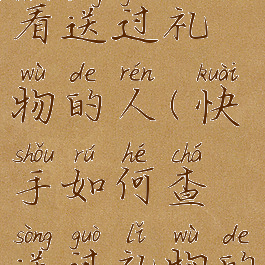 看送过礼
wù de rén kuài
物的人(快
shǒu rú hé chá
手如何查
sòng guò lǐ wù de
送过礼物的